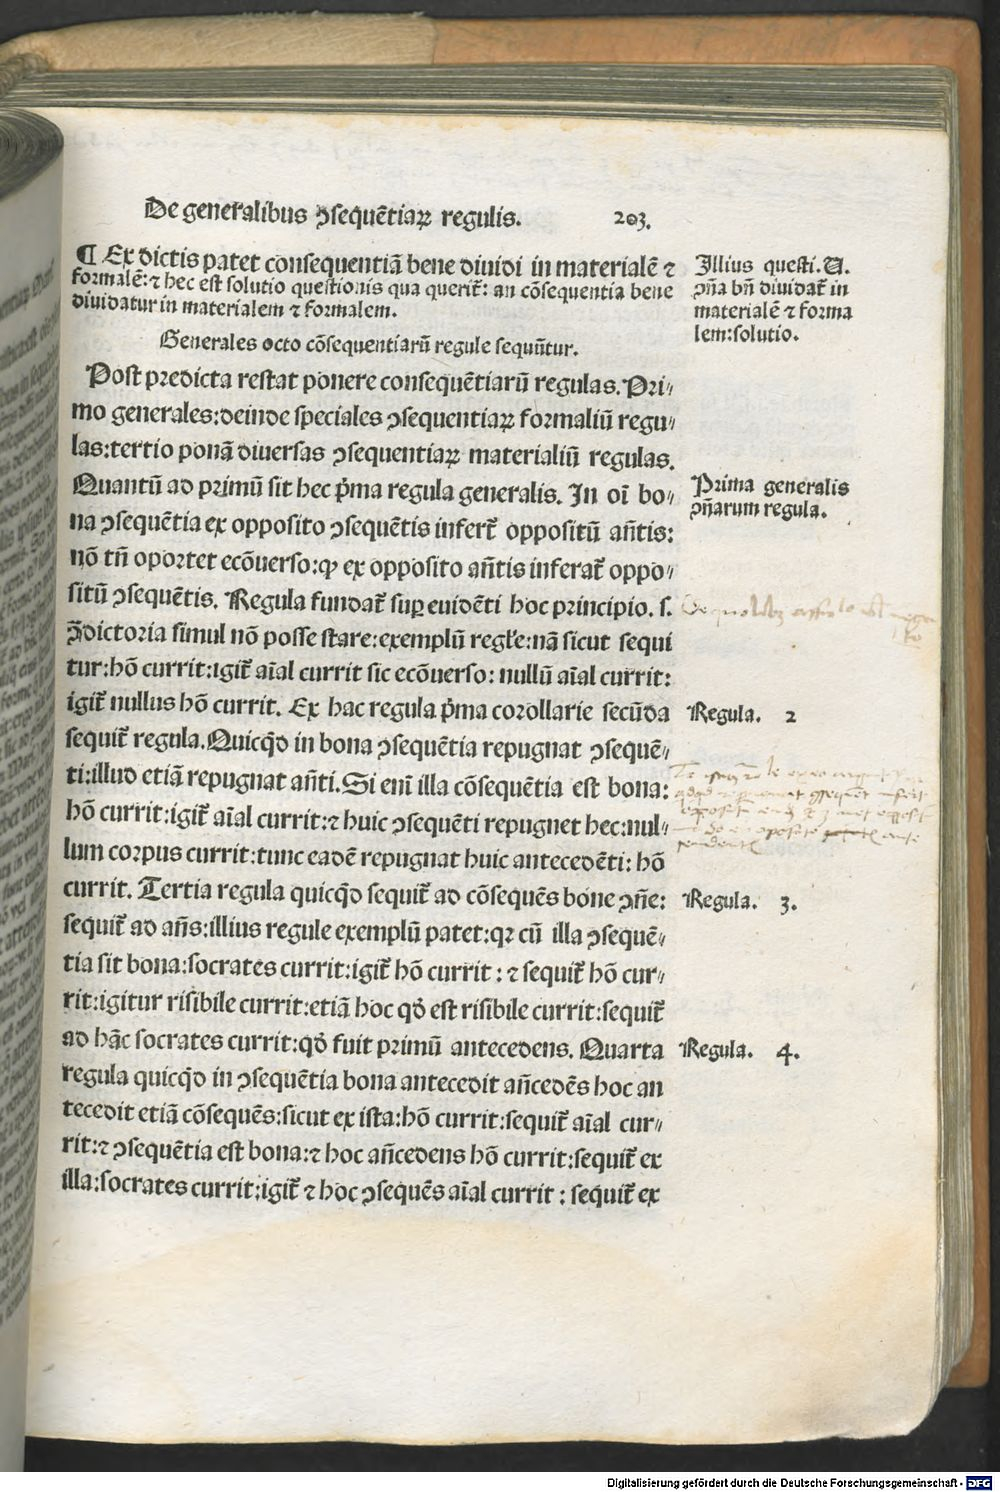 De generalibus ꝯsequētiaꝝ regulis. 203.
¶ Ex dictis patet consequentiā bene diuidi in materialē ⁊
formalē: ⁊ hec est solutio questionis qua querit̄: an cōsequentia bene
diuidatur in materialem ⁊ formalem.
Illius questi. U.
ꝯn̄a bn̄ diuidat̄ in
materialē ⁊ forma
lem: solutio.
Generales octo cōsequentiarū regule sequūtur.
Post predicta restat ponere consequētiarū regulas. Pri⸗
mo generales: deinde speciales ꝯsequentiaꝝ formaliū regu⸗
las: tertio ponā diuersas ꝯsequentiaꝝ materialiū regulas.
Quantū ad primū sit hec p̄ma regula generalis. In oī bo⸗
na ꝯsequētia ex opposito ꝯsequētis infert̄ oppositū an̄tis:
nō tn̄ oportet ecōuerso: ꝙ ex opposito an̄tis inferat̄ oppo⸗
sitū ꝯsequētis. Regula fundat̄ suꝑ euidēti hoc principio. s.
ꝯ̄dictoria simul nō posse stare: exemplū regl̄e: nā sicut sequi
tur: hō currit: igit̄ aīal currit sic ecōuerso: nullū aīal currit:
igit̄ nullus hō currit. Ex hac regula p̄ma corollarie secūda
sequit̄ regula. Quicq̄d in bona ꝯsequētia repugnat ꝯsequē⸗
ti: illud etiā repugnat an̄ti. Si enī illa cōsequentia est bona:
hō currit: igit̄ aīal currit: ⁊ huic ꝯsequēti repugnet hec: nul⸗
lum corpus currit: tunc eadē repugnat huic antecedēti: hō
currit. Tertia regula quicq̄d sequit̄ ad cōsequēs bone ꝯn̄e:
sequit̄ ad an̄s: illius regule exemplū patet: qꝛ cū illa ꝯsequē⸗
tia sit bona: socrates currit: igit̄ hō currit: ⁊ sequit̄ hō cur⸗
rit: igitur risibile currit: etiā hoc qd̄ est risibile currit: sequit̄
ad hāc socrates currit: qd̄ fuit primū antecedens. Quarta
regula quicq̄d in ꝯsequētia bona antecedit an̄cedēs hoc an
tecedit etiā cōsequēs: sicut ex ista: hō currit: sequit̄ aīal cur⸗
rit: ⁊ ꝯsequētia est bona: ⁊ hoc an̄cedens hō currit: sequit̄ ex
illa: socrates currit: igit̄ ⁊ hoc ꝯsequēs aīal currit: sequit̄ ex
Prima generalis
ꝯn̄arum regula.
Regula. 2
Regula. 3.
Regula. 4.
Digitalisierung gefördert durch die Deutsche Forschungsgemeinschaft - DFG